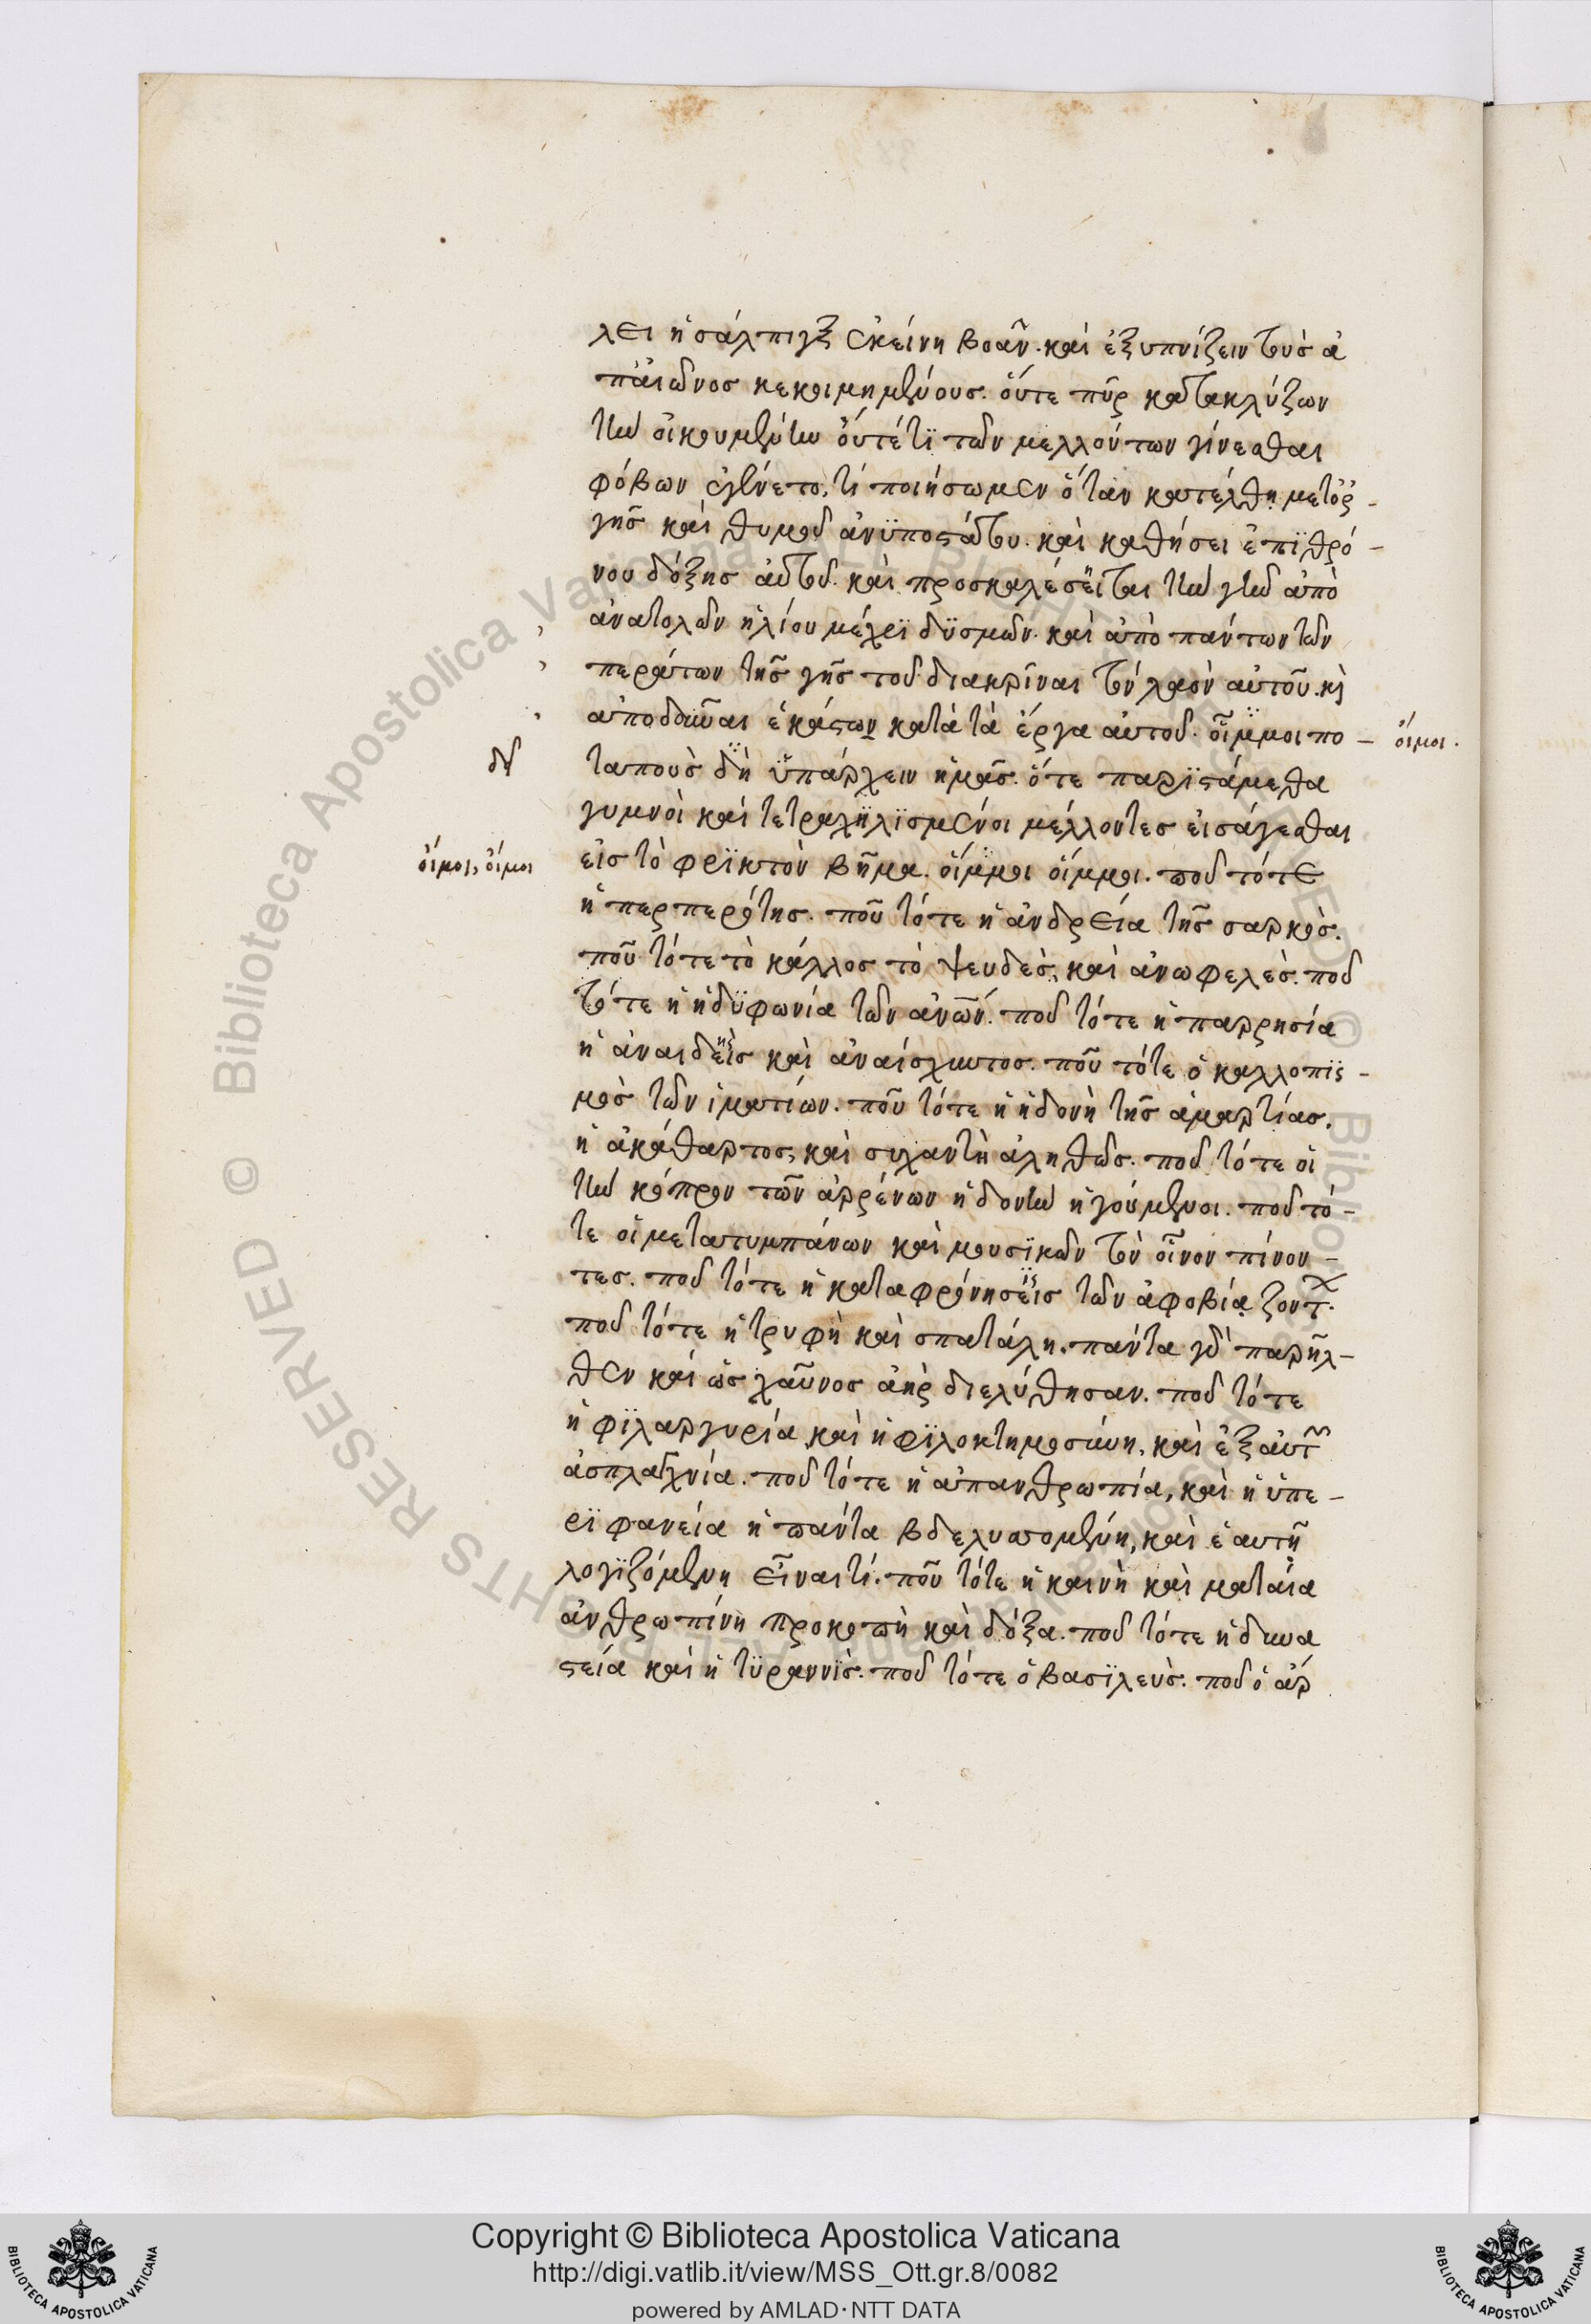 λει ἡ σάλπιγξ ἐκείνη βοᾶν. καὶ ἐξυπνίζειν τοὺσ ἀ
πἀιῶνοσ κεκοιμημένουσ. ὄυτε πῦρ κατακλύζων
τὴν οἰκουμένην ὄυτέτϊ τῶν μελλόντων γίνεσθαι
φόβων ἐγένετο, τί ποιήσωμεν ὅταν κατέλθη μετὀρ -
γῆσ καὶ θυμοῦ ἀνϋποστάτου. καὶ καθήσει ἐπῒ θρό -
νου δόξησ ἀυτοῦ. καὶ προσκαλέσειται τὴν γῆν ἀπὸ
ἀνατολῶν ἡλίου μέχρϊ δϋσμῶν. καὶ ἀπὸ πάντων τῶν
περάτων τῆσ γῆσ τοῦ διακρῖναι τὸν λαὸν αὐτοῦ. κὶ
ἀποδοῦναι ἑκάστων κατὰ τὰ ἔργα αὐτοῦ. οἴμμοι πο -
οἴμοι.
δεῖ
ταποὺσ δὴ ὑπάρχειν ἡμᾶσ. ὅτε παρϊστάμεθα
γυμνοὶ καὶ τετραχηλϊσμένοι μέλλοντεσ εἰσάγεσθαι
οἴμοι, οἴμοι
εἰσ τὸ φρϊκτὸν βῆμα. οἴμμοι οἴμμοι. ποῦ τότε
ἡ περπερότησ. ποῦ τότε ἡ ἀνδρεία τῆσ σαρκόσ.
ποῦ τότε τὸ κάλλοσ τὸ ψευδὲσ, καὶ ἀνωφελὲσ. ποῦ
τότε ἡ ἡδϋφωνία τῶν ἀνῶν. ποῦ τότε ἡ παρρησία
ἡ ἀναιδεὶσ καὶ ἀναίσχυντοσ. ποῦ τότε ὁ καλλοπϊσ -
μὸσ τῶν ἱματίων. ποῦ τότε ἡ ἡδονὴ τῆσ ἁμαρτίασ.
ἡ ἀκάθαρτοσ, καὶ συχαντὴ ἀληθῶσ. ποῦ τότε οἱ
τὴν κόπρον τῶν ἀρρένων ἡδονὴν ἡγούμενοι. ποῦ τό -
τε οἱ μετατυμπάνων καὶ μουσϊκῶν τὸν οἶνον πίνον -
τεσ. ποῦ τότε ἡ καταφρόνησεισ τῶν ἀφοβία ζοντ.
ποῦ τότε ἡ τρυφὴ καὶ σπατάλη. πάντα γὰρ παρῆλ -
θεν καὶ ὡσ χαῦνοσ ἀὴρ διελύθησαν. ποῦ τότε
ἡ φϊλαργυρία, καὶ ἡ φϊλοκτημοσύνη, καὶ ἐξ αὐτ
ἀσπλαγχνία. ποῦ τότε ἡ ἀπανθρωπία, καὶ ἡ ὑπε -
ρϊφανεία ἡ πάντα βδελυσομένη, καὶ ἑαυτῆ
λογϊζόμενη εἶναι τί. ποῦ τότε ἡ καινὴ καὶ ματαία
ἀνθρωπίνη προκοπὴ καὶ δόξα. ποῦ τότε ἡ δυνα
στεία καὶ ἡ τϋραννὶσ. ποῦ τότε ὁ βασϊλεὺσ. ποῦ ὁ ἄρ
Copyright © Biblioteca Apostolica Vaticana
http://digi.vatlib.it/view/MSS_Ott.gr.8/0082
powered by AMLAD·NTT DATA